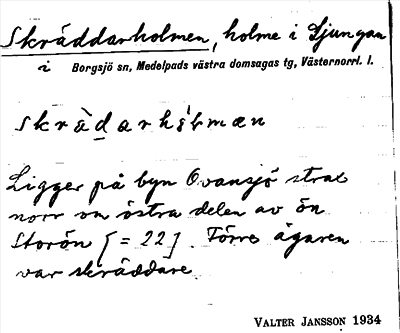 Skräddarholmen, holme i Ljungan
i Borgsjö sn, Medelpads västra domsagas tg, Västernorrl. l.
skràdarhòlmæn
Ligger på byn Ovansjö strax
norr om östra delen av ön
Storön [= 22]. Förre ägaren
var skräddare.
VALTER JANSSON 1934